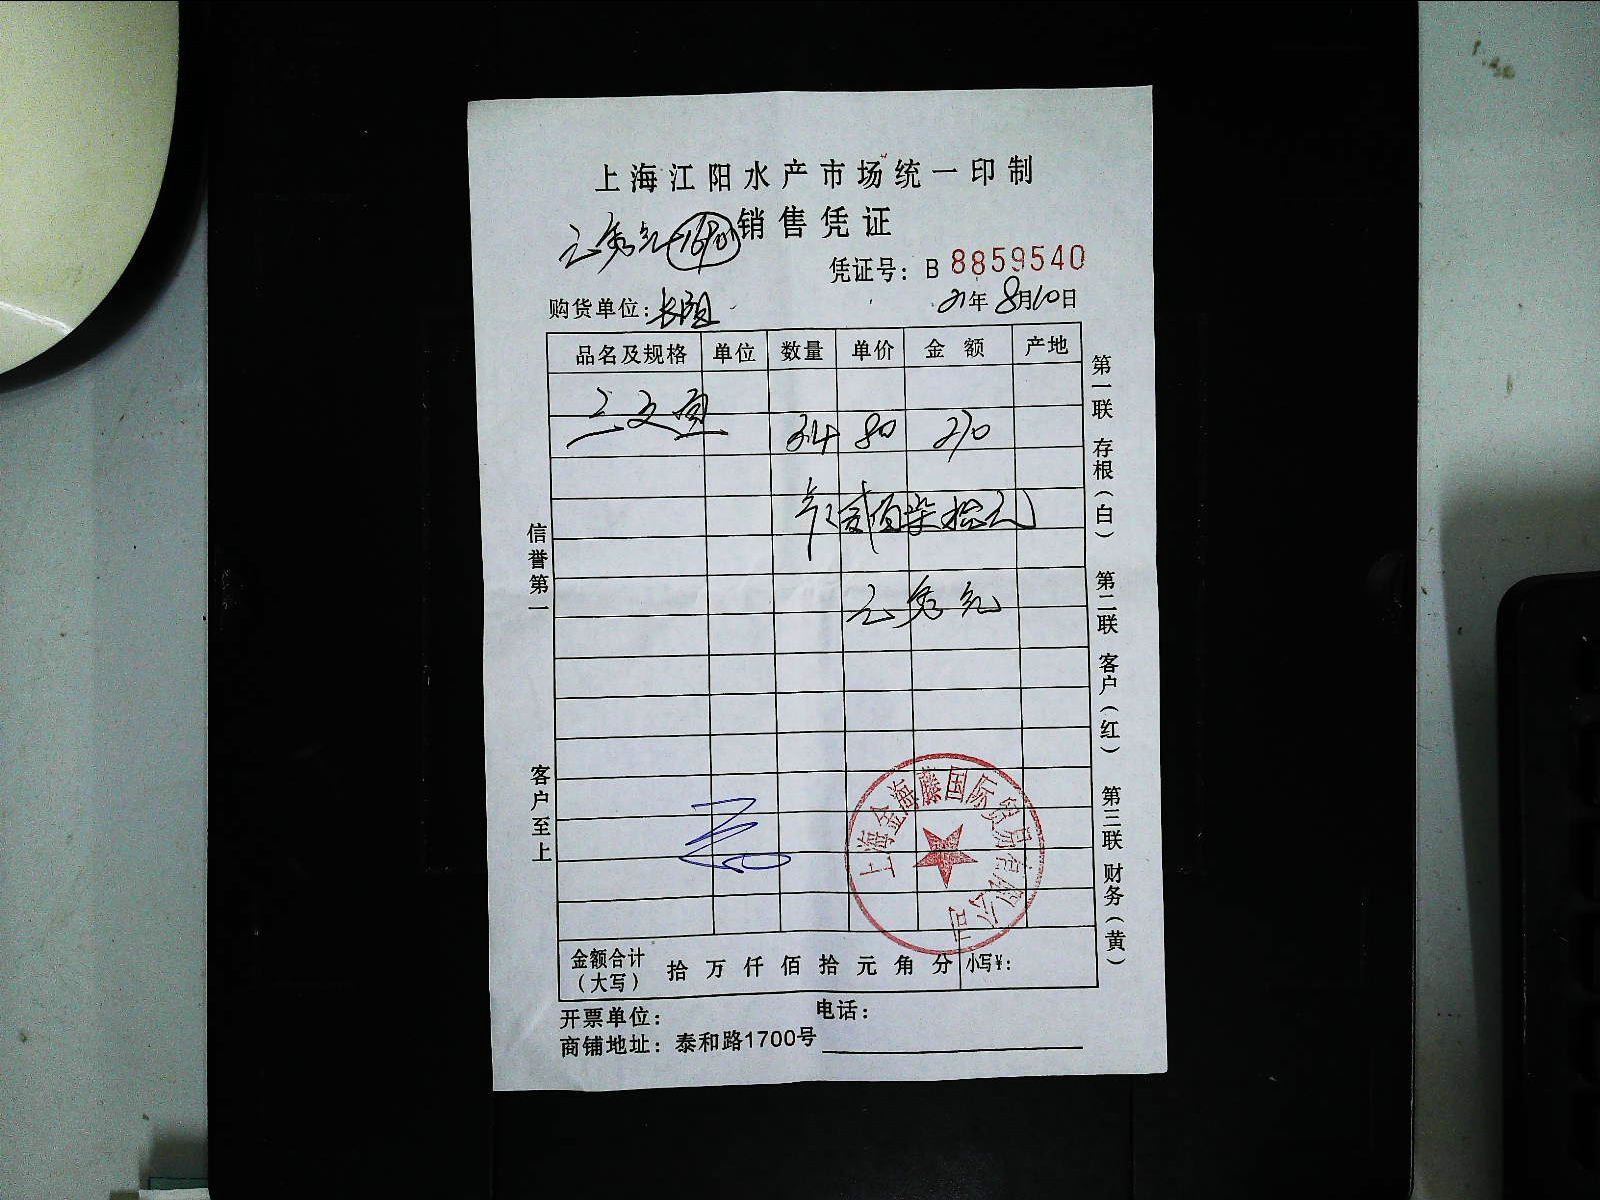 上海江阳水产市场统一印制
销售凭证
凭证号：B 8859540
购货单位：
21年8月10日
品名及规格 单位 数量 单价 金额 产地
三文鱼 34 80 270
贰佰柒拾元
信誉第一
客户至上
第一联 存根（白） 第二联 客户（红） 第三联 财务（黄）
上海金海藤国际贸易有限公司
金额合计（大写） 拾万仟佰拾元角分 小写¥：
开票单位： 电话：
商铺地址：泰和路1700号